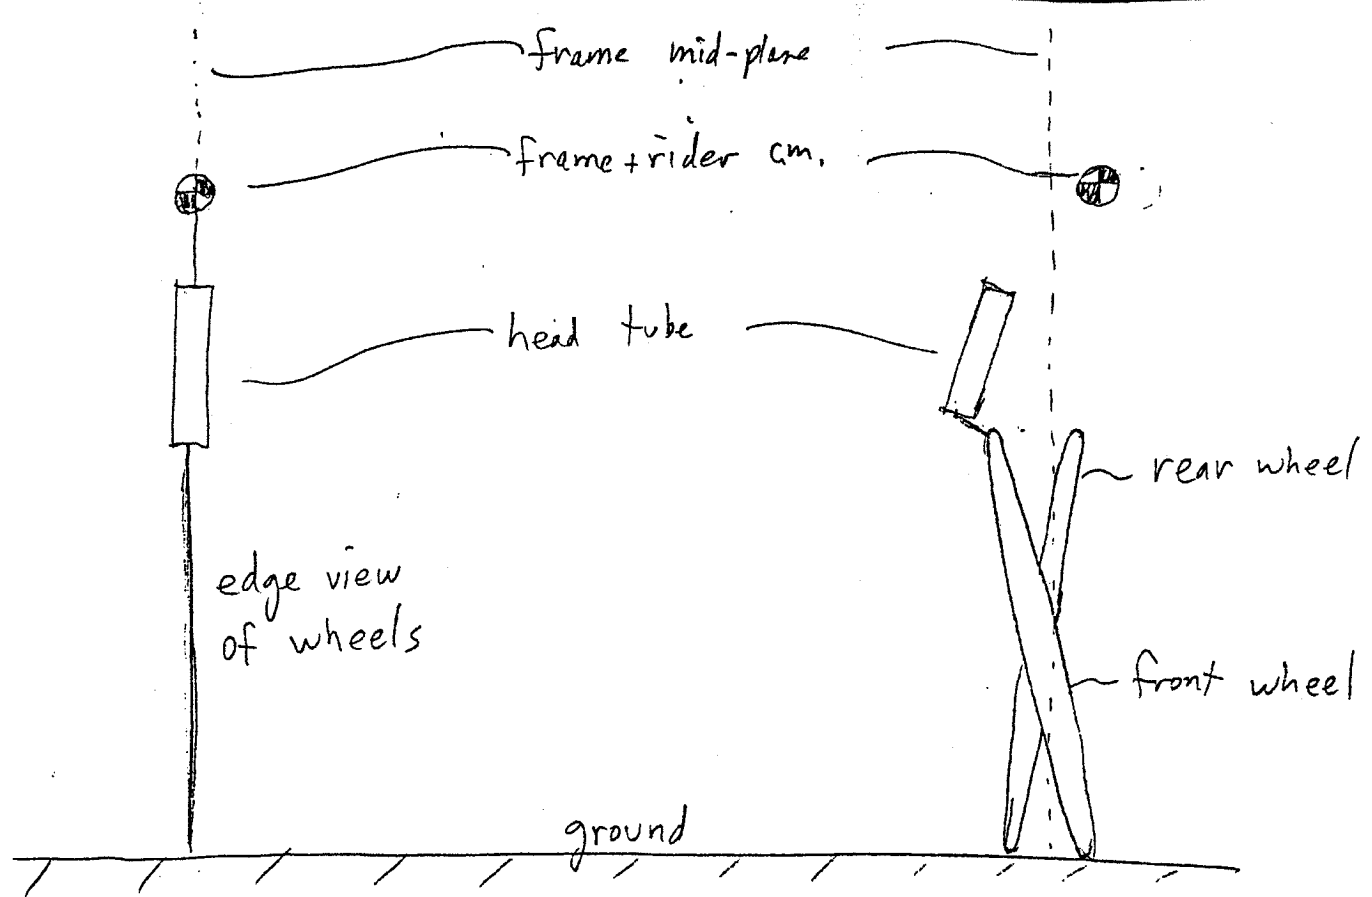 frame mid-plane
frame + rider cm.
head tube
rear wheel
edge view
of wheels
front wheel
ground